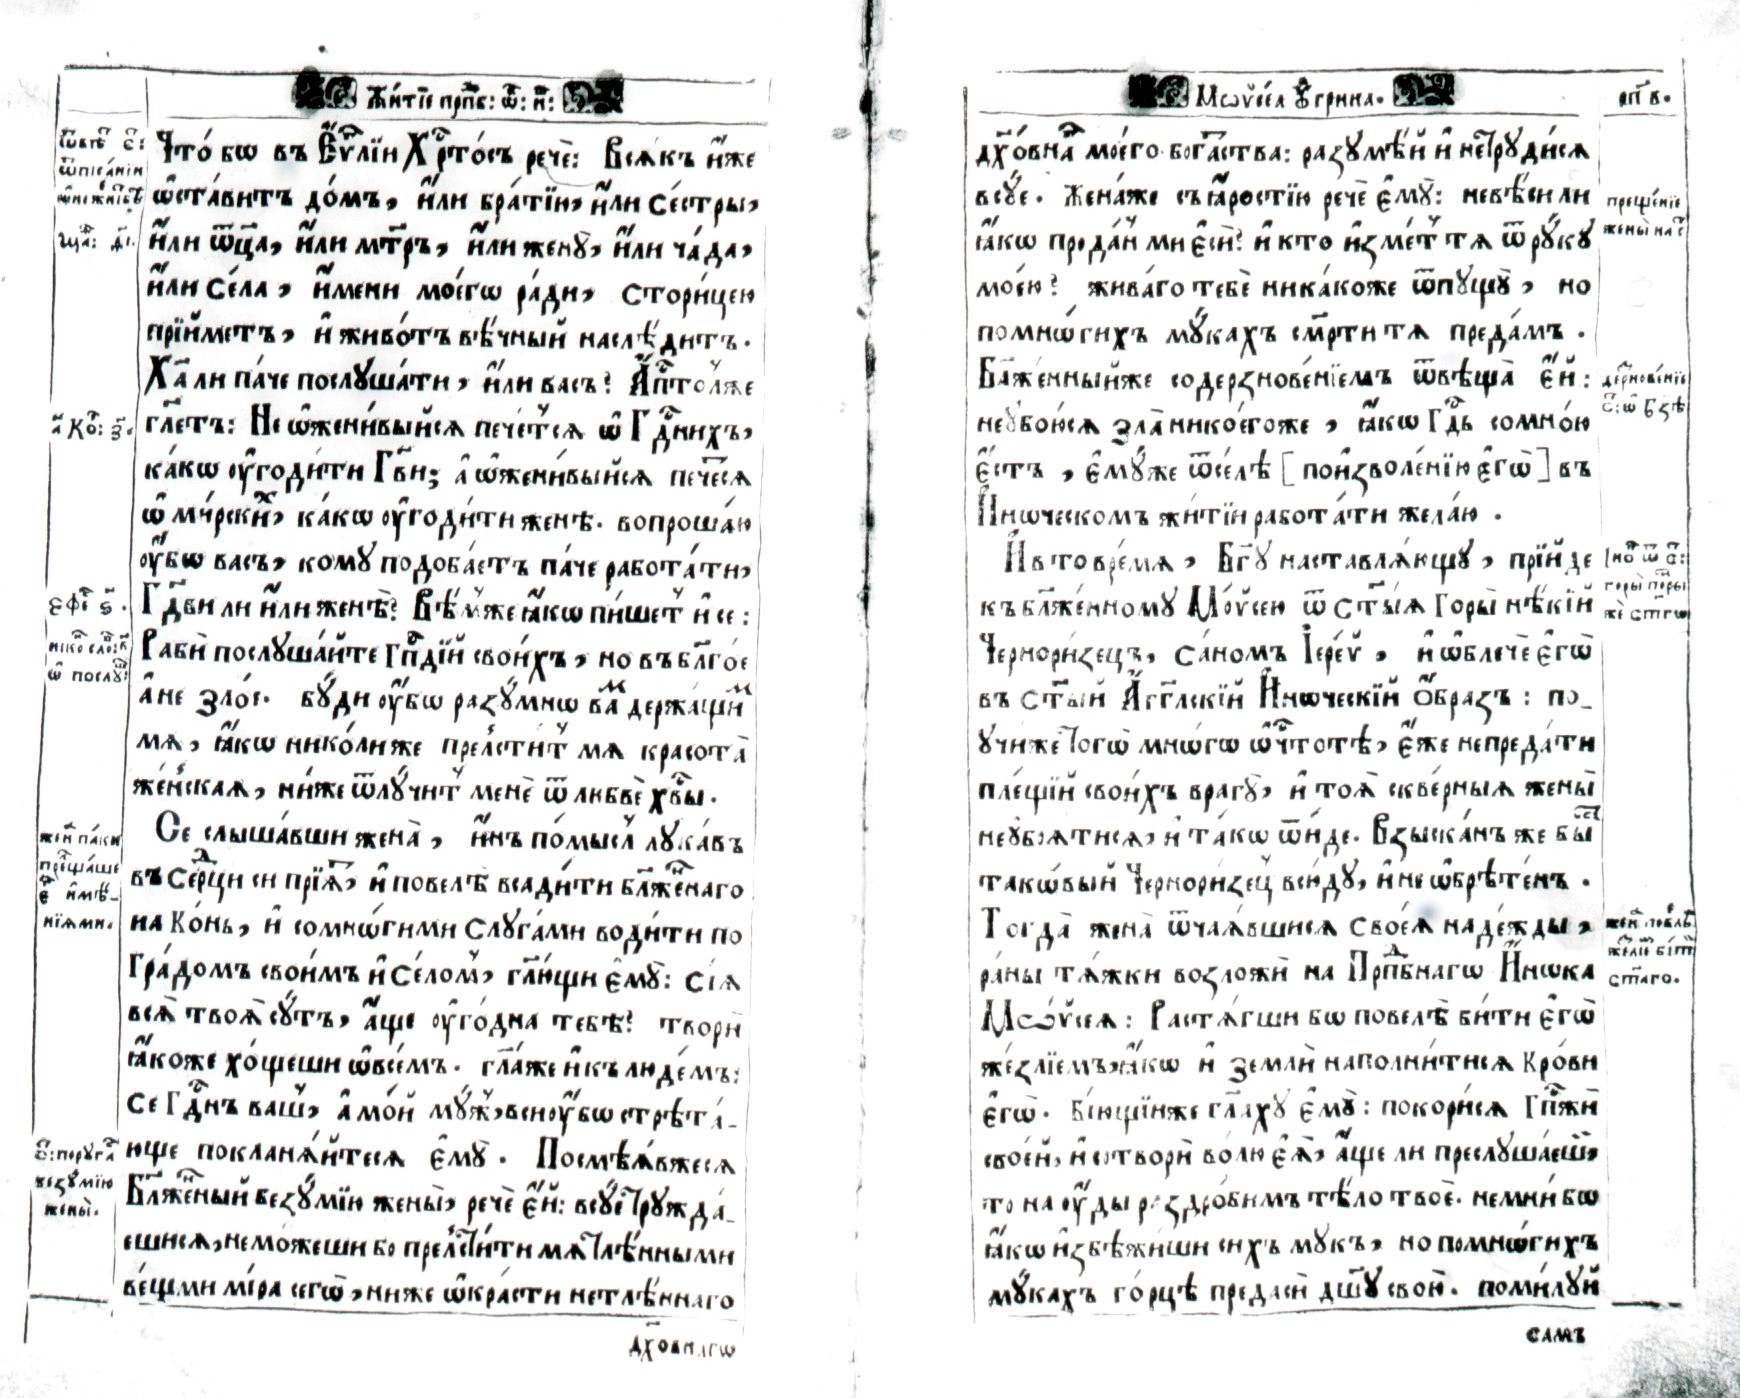 Жи́тїе прп҇б: ѿ: н҃:
Что́ бѡ въ Еѵ҇лїи Хр҇то́съ речѐ: Всѧ́къ и҆́же
ѡ҆ста́витъ до́мъ, и҆лѝ бра́тїи, и҆лѝ сестры̀,
и҆лѝ ѿц҃а, и҆лѝ мт҃ръ, и҆лѝ женꙋ̀, и҆лѝ ча́да,
и҆лѝ се́ла, и҆́мени моегѡ̀ ра́ди, стори́цею
прїи́метъ, и҆ живо́тъ вѣ́чный наслѣ́дитъ.
Ха҇ ли па́че послꙋша́ти, и҆лѝ васъ? А҆п҇толже
гл҃етъ: Не ѡ҆жени́выйсѧ пече́тсѧ ѡ҆ Гд҇нихъ,
ка́кѡ ѹ҆годи́ти Гв҃и; а҆ ѡ҆жени́выйсѧ пече́сѧ
ѡ҆ ми́рскихъ, ка́кѡ ѹ҆годи́ти женѣ. вопроша́ю
ѹ҆́бѡ васъ, комꙋ подоба́етъ па́че рабо́тати,
Гд҇ви ли и҆лѝ женѣ̀? Вѣ́мже ꙗ҆́кѡ пи́шет и҆ се:
Рабѝ послꙋша́йте Гп҇дїй свои́хъ, но въ бл҃го́е
а҆ не зло́е. бꙋ́ди ѹ҆́бѡ разꙋ́мнѡ вам держа́щим
мѧ, ꙗ҆́кѡ нико́лиже прелсти́т мѧ красота̀
же́нскаѧ, ни́же ѿлꙋ́чит менѐ ѿ любвѐ хв҇ы.
Се слы́шавши жена̀, и҆́нъ по́мысл лꙋка́въ
въ се́рдци си прїѧ́т, и҆ повелѣ̀ всади́ти бл҃же́ннаго
на ко́нь, и҆ со мно́гими слꙋга́ми води́ти по
гра́домъ свои́мъ и҆ се́лом, гл҃ющи е҆мꙋ̀: сїѧ̀
всѧ̀ твоѧ̀ сꙋ́тъ, а҆́ще ѹ҆го́дна тебѣ̀? творѝ
ꙗ҆́коже хо́щеши ѡ҆ все́мъ. гл҃аже и҆ къ людемъ:
Се Гд҇нъ ваш, а҆ мо́й мꙋ́ж, вси ѹ҆́бѡ стрѣта́-
юще поклана́йтесѧ е҆мꙋ̀. Посмѣѧ́вжесѧ
Бл҃же́нный безꙋ́мїю жены̀, речѐ е҆́й: всꙋ́е трꙋжда́-
ешисѧ, не мо́жеши бо прелсти́ти мѧ тлѣ́нными
ве́щми мі́ра сегѡ̀, ни́же ѡ҆кра́сти нетлѣ́ннаго
дх҃овнагѡ
а҃ Ко҇: з҃.
Ефе҇ ѕ҃.
жена̀ па́ки
преща́ше
и҆мѣ-
нїѧми.
безꙋ́мїю
жены̀.
Мѡѷсе́ѧ Ѹ҆грина.
рп҃в.
дх҃о́вна моего̀ бога́тства: разꙋмѣ́й и҆ не трꙋди́сѧ
всꙋ́е. Жена́же съ ꙗ҆́ростїю речѐ е҆мꙋ̀: не вѣ́си ли
ꙗ҆́кѡ про́дан ми е҆сѝ? и҆ кто и҆зме́т тѧ ѿ рꙋкꙋ̀
мое́ю? жива́го тебѐ ника́коже ѿпꙋщꙋ̀, но
по мнѡ́гихъ мꙋ́кахъ см҃рти тѧ преда́мъ.
Бл҃же́нныйже со дерзнове́нїемъ ѿвѣща̀ е҆́й:
не ꙋбою́сѧ зла̀ нико́егоже, ꙗ҆́кѡ Гд҇ь со мно́ю
е҆́стъ, е҆мꙋ́же ѿсе́лѣ [по и҆зволе́нїю е҆гѡ̀] въ
И҆́ноческомъ жи́тїи рабо́тати жела́ю.
И҆ в то вре́мѧ, Бг҃ꙋ наставлѧ́ющꙋ, прїи́де
къ бл҃же́нномꙋ Мѡѷсею ѿ ст҃ы́ѧ Горы̀ нѣ́кїй
Черноризецъ, са́номъ І҆ере́й, и҆ ѡ҆блечѐ е҆гѡ̀
въ ст҃ый А҆́гг҃лскїй И҆́ноческїй ѻ҆́бразъ: по-
ꙋчи́же того̀ мнѡ́гѡ ѡ҆ чтотѣ̀, е҆́же не преда́ти
плещі́й свои́хъ врагꙋ̀, и҆ тоѧ̀ скве́рныѧ жены̀
не ꙋбоѧ́тисѧ, и҆ та́кѡ ѿи́де. Взыска́нъ же бы́сть
такѡ́вый Черноризец всю́дꙋ, и҆ не ѡ҆брѣ́тенъ.
Тогда̀ жена̀ ѿча́ѧвшисѧ своеѧ́ наде́жды,
ра́ны тѧ́жки возложѝ на Прп҇бнаго И҆́нока
Мѡѷсеѧ: Растѧ́гши бо повелѣ̀ би́ти е҆гѡ̀
же́злїемъ, ꙗ҆́кѡ и҆ землѝ напо́лнитисѧ кро́ви
е҆гѡ̀. Бїю́щїиже гл҃ахꙋ е҆мꙋ̀: покори́сѧ Гп҇жѝ
свое́й, и҆ сотворѝ во́лю е҆ѧ̀, а҆́ще ли преслꙋша́еши,
то на ѹ҆́ды раздро́бимъ тѣ́ло твоѐ. не мни́ бѡ
ꙗ҆́кѡ и҆збѣжи́ши си́хъ мꙋкъ, но по мнѡ́гихъ
мꙋ́кахъ го́рцѣ предасѝ дш҃ꙋ свою̀. поми́лꙋй
самъ
преще́нїе
жены̀
дерзнове́нїе
ст҃аго.